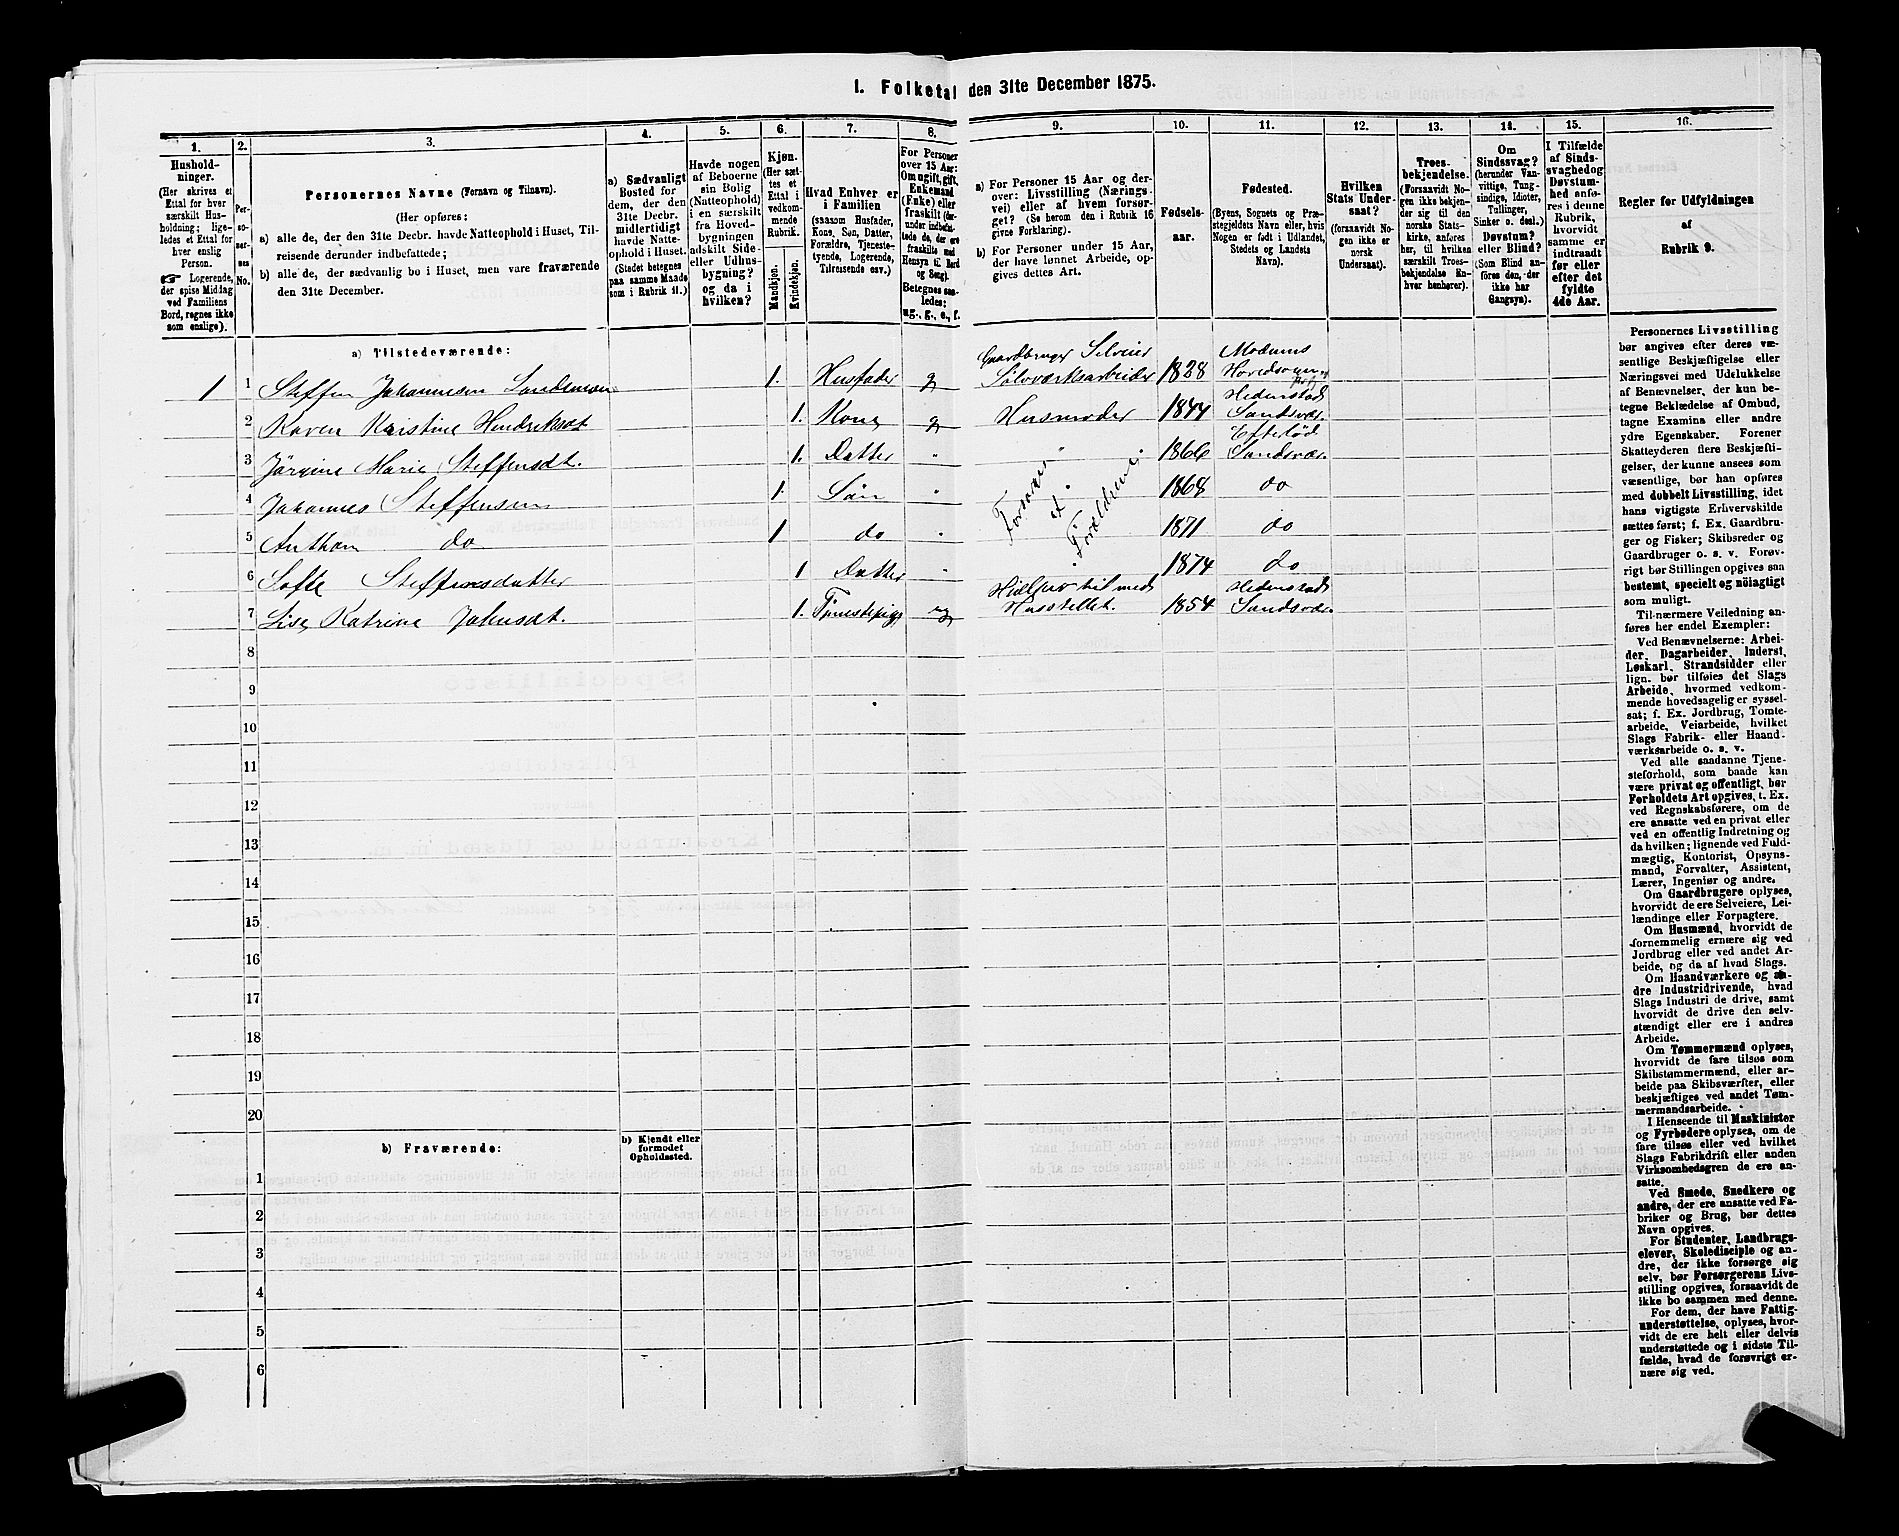 1. Folketal den 31te December 1875.
1.
Hushold-
ninger.
(Her skrives et
Ettal for hver
særskilt Hus-
holdning; lige-
ledes et Ettal for
hver enslig
Person.
Logerende,
der spise Middag
ved Familiens
Bord, regnes ikke
som enslige).
2.
Per-
so-
ner-
nes
No.
3.
Personernes Navne (Fornavn og Tilnavn).
(Her opføres:
a) alle de, der den 31te Decbr. havde Natteophold i Huset, Til-
reisende derunder indbefattede;
b) alle de, der sædvanlig bo i Huset, men vare fraværende
den 31te December.
4.
a) Sædvanligt
Bosted for
dem, der den
31te Decbr.
midlertidigt
havde Natte-
ophold i Huset.
(Stedet betegnes
paa samme Maade
som i Rubrik 11.)
5.
Havde nogen
af Beboerne
sin Bolig
(Natteophold)
i en særskilt
fra Hoved-
bygningen
adskilt Side-
eller Udhus-
bygning?
og da i
hvilken?
6.
Kjøn.
(Her sæt-
tes et
Ettal i
vedkom-
mende
Rubrik.
Mandkjøn.
Kvindekjøn.
7.
Hvad Enhver er
i Familien
(saasom Husfader,
Kone, Søn, Datter,
Forældre, Tjeneste-
tyende, Logerende,
Tilreisende osv.)
8.
For Personer
over 15 Aar:
Om ugift, gift,
Enkemand
(Enke) eller
fraskilt (der-
under indbefat-
tede de, der ere
fraskilte med
Hensyn til Bord
og Seng).
Betegnes saa-
ledes:
ug., g., e., f.
9.
a) For Personer 15 Aar og der-
over: Livsstilling (Nærings-
vei) eller af hvem forsør-
get? (Se herom den i Rubrik 16
givne Forklaring).
b) For Personer under 15 Aar,
der have lønnet Arbeide, op-
gives dettes Art.
10.
Fødsels-
aar.
11.
Fødested.
(Byens, Sognets og Præ-
stegjeldets Navn eller, hvis
Nogen er født i Udlandet,
Stedets og Landets
Navn).
12.
Hvilken
Stats Under-
saat?
(forsaavidt No-
gen ikke er
norsk
Undersaat).
13.
Troes-
bekjendelse.
(Forsaavidt No-
gen ikke bekjen-
der sig til den
norske Stats-
kirke, anføres
her, til hvilken
særskilt Troes-
bekjendelse En-
hver henhører).
14.
Om
Sindssvag?
(herunder Van-
vittige, Tung-
sindige, Idioter,
Tullinger,
Sinker o. desl.)
Døvstum?
eller Blind?
(Som Blind an-
føres den, der
ikke har
Gangsyn).
15.
I Tilfælde
af Sinds-
svaghed og
Døvstum-
hed anfø-
res i denne
Rubrik,
hvorvidt
samme er
indtraadt
før eller
efter det
fyldte
4de Aar.
16.
Regler for Udfyldningen
af
Rubrik 9.
a) Tilstedeværende:
1 1 Steffen Johannesen Sandsmoen 1. Husfader g Gaardbruger Selveier Sølværksarbeider 1828 Modums Hovedsogn
2 Karen Kristine Hendriksdt 1. Kone g Husmoder 1844 Hedenstad Sandsvær
3 Jørgine Marie Steffensdt. 1. Datter " " 1866 Eftelød Sandsvær.
4 Johannes Steffensen 1 Søn " Forsørget af Forældrene. 1868 do
5 Anthon do 1 do " 1871 do
6 Sofie Steffensdatter 1 Datter " 1874 do
7 Lise Katrine Johnsdt. 1. Tjenestepige ug Hjælper til med Husstellet. 1854 Hedenstad Sandsvær
8
9
10
11
12
13
14
15
16
17
18
19
20
b) Fraværende:
b) Kjendt eller
formodet
Opholdssted.
1
2
3
4
5
6
Personernes Livsstilling
bør angives efter deres væ-
sentlige Beskjæftigelse eller
Næringsvei med Udelukkelse
af Benævnelser, der kun be-
tegne Beklædelse af Ombud,
tagne Examina eller andre
ydre Egenskaber. Forener
Skatteyderen flere Beskjæfti-
gelser, der kunne ansees som
væsentlige, bør han opføres
med dobbelt Livsstilling, idet
hans vigtigste Erhvervskilde
sættes først; f. Ex. Gaardbru-
ger og Fisker; Skibsreder og
Gaardbruger o. s. v. Forøv-
rigt bør Stillingen opgives saa
bestemt, specielt og nöiagtigt
som muligt.
Til nærmere Veiledning an-
føres her endel Exempler:
Ved Benævnelserne: Arbei-
der, Dagarbeider, Inderst,
Løskarl, Strandsidder eller
lign. bør tilføies det Slags
Arbeide, hvormed vedkom-
mende hovedsagelig er syssel-
sat; f. Ex. Jordbrug, Tomte-
arbeide, Veiarbeide, hvilket
Slags Fabrik- eller Haand-
værksarbeide o. s. v.
Ved alle saadanne Tjene-
steforhold, som baade kan
være privat og offentligt, bør
Forholdets Art opgives, t. Ex.
ved Regnskabsførere, om de
ere ansatte ved en privat eller
ved en offentlig Indretning og
da hvilken; lignende ved Fuld-
mægtig, Kontorist, Opsyns-
mand, Forvalter, Assistent,
Lærer, Ingeniør og andre.
Om Gaardbrugere oplyses,
hvorvidt de ere Selveiere, Lei-
lændinge eller Forpagtere.
Om Husmænd, hvorvidt de
fornemmelig ernære sig ved
Jordbrug eller ved andet Ar-
beide, og da af hvad Slags.
Om Haandværkere og an-
dre Industridrivende, hvad
Slags Industri de drive, samt
hvorvidt de drive den selv-
stændigt eller ere i andres
Arbeide.
Om Tømmermænd oplyses,
hvorvidt de fare tilsøs som
Skibstømmermænd, eller ar-
beide paa Skibsværfter, eller
beskjæftiges ved andet Tøm-
mermandsarbeide.
I Henseende til Maskinister
og Fyrbødere oplyses, om de
fare tilsøs eller ved hvilket
Slags Fabrikdrift eller anden
Virksomhedsgren de ere an-
satte.
Ved Smede, Snedkere og
andre, der ere ansatte ved Fa-
briker og Brug, bør dettes
Navn opgives.
For Studenter, Landbrugs-
elever, Skoledisciple og an-
dre, der ikke forsørge sig
selv, bør Forsørgerens Livs-
stilling opgives, forsaavidt de
ikke bo sammen med denne.
For dem, der have Fattig-
understøttelse, oplyses, hvor-
vidt de ere helt eller delvis
understøttede og i sidste Til-
fælde, hvad de forøvrigt er-
nære sig ved.